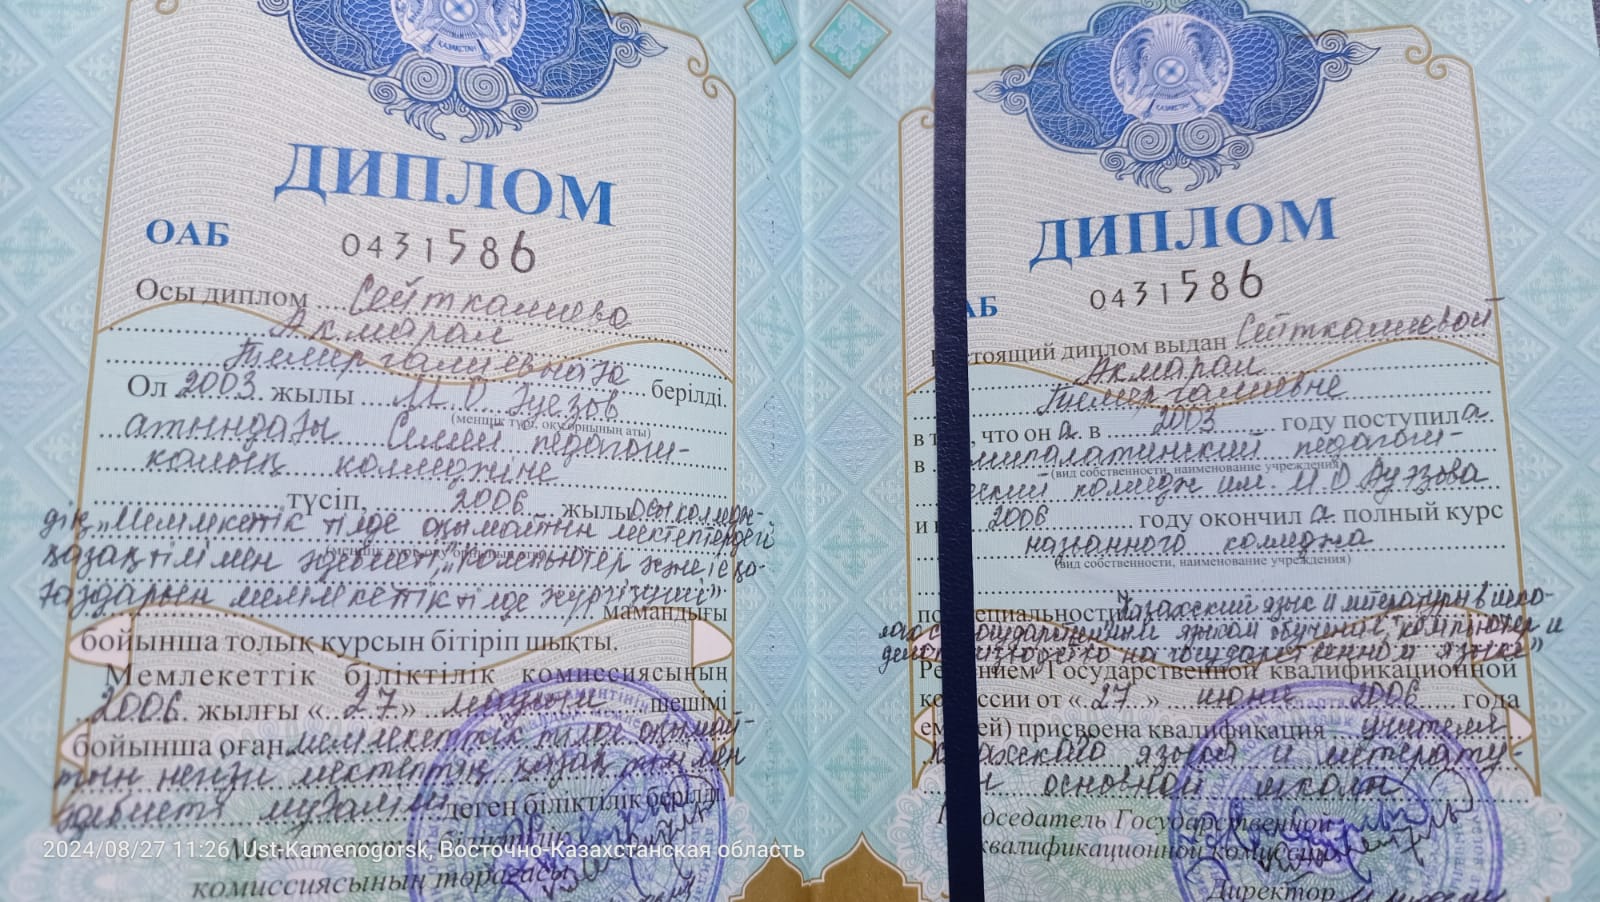 ҚАЗАҚСТАН
ДИПЛОМ
ОАБ
0431586
Осы диплом Сейткалиева
Акмарал
Темиргалиевнаға берілді.
Ол 2003 жылы М О Әуезов
(меншік түрі, оқу орнының аты)
атындағы Семей педагоги-
калық колледжіне
түсіп, 2006 жылы осы коллед-
дің „Мемлекеттік тілде оқымайтын мектептердегі
қазақ тілі мен әдебиеті, компьютер және іс қа-
ғаздарын мемлекеттік тілде жүргізуші"
мамандығы
бойынша толық курсын бітіріп шықты.
Мемлекеттік біліктілік комиссиясының
2006 жылғы «27» маусым шешімі
бойынша оған мемлекеттік тілде оқымай-
тын негізгі мектептің қазақ тілі мен
әдебиеті мұғалімі деген біліктілік берілді.
біліктілік
комиссиясының төрағасы
ҚАЗАҚСТАН
ДИПЛОМ
АБ
0431586
стоящий диплом выдан Сейткалиевой
Акмарал
Темиргалиевне
в т, что он а в 2003 году поступил а
в мипалатинский педагоги-
(вид собственности, наименование учреждения)
еский коледж им. М О Ауэзова
и 2006 году окончил а полный курс
названного коледжа
(вид собственности, наименование учреждения)
по ециальности „Казахский язык и литература в шко-
лах с государственным языком обучения, компьютер и
делопроизводство на государственном языке"
Ре нием Государственной квалификационной
ко ссии от «27» июня 2006 года
ем ей) присвоена квалификация учителя
казахского языка и литерату-
основной школы
дседатель Государственной
квалификационной комиссии
Директор
2024/08/27 11:26, Ust-Kamenogorsk, Восточно-Казахстанская область